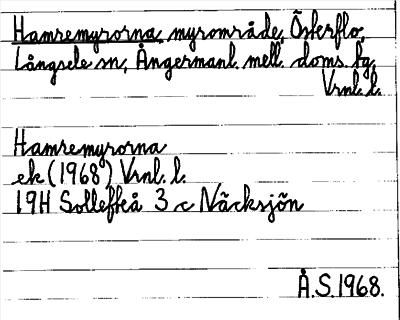 Hamremyrorna, myrområde, Österflo,
Långsele sn, Ångermanl. mell. doms. fg.
Vrnl. l.
Hamremyrorna
ek (1968) Vrnl. l.
19H Sollefteå 3 c Näcksjön
Å.S.1968.